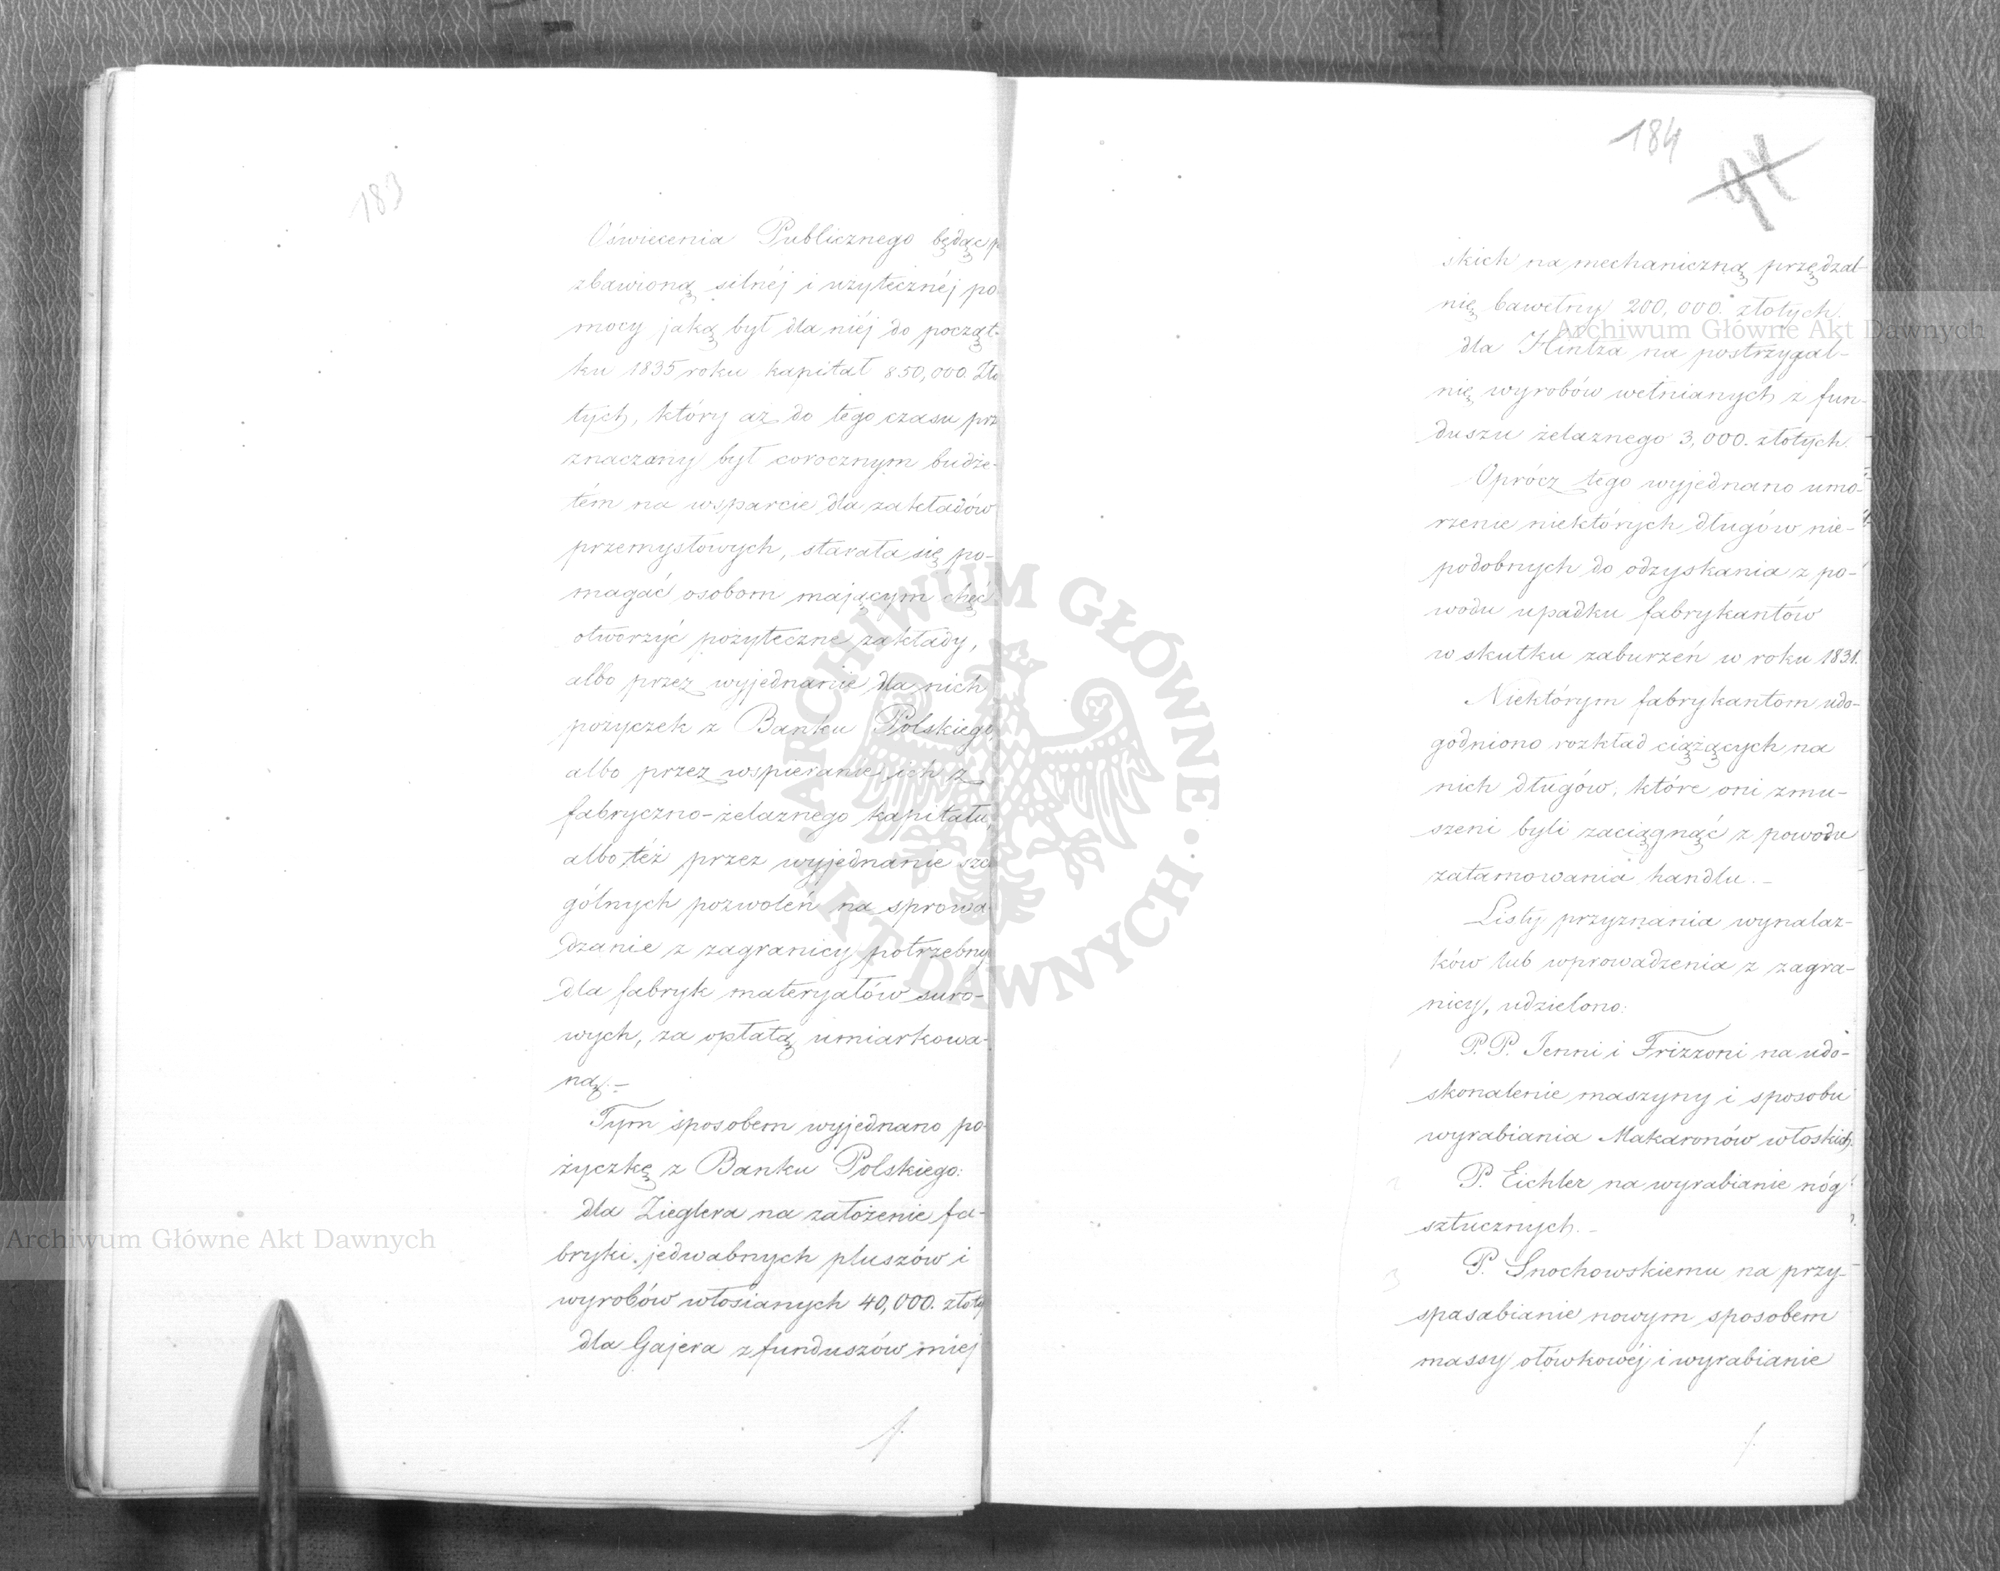 183
Oświecenia Publicznego będąc p
zbawioną silnéj i użytecznéj po-
mocy jaką był dla niéj do począt-
ku 1835 roku kapitał 850,000 Zło
tych, który aż do tego czasu prze
znaczany był corocznym budże-
tém na wsparcie dla zakładów
przemysłowych, starała się po-
magać osobom mającym chęć
otworzyć pożyteczne zakłady,
albo przez wyjednanie dla nich
pożyczek z Banku Polskiego,
albo przez wspieranie ich z
fabryczno-żelaznego kapitału,
albo też przez wyjednanie szcze
gólnych pozwoleń na sprowa-
dzanie z zagranicy potrzebny
dla fabryk materyałów suro-
wych, za opłatą umiarkowa-
ną.—
Tym sposobem wyjednano po-
życzkę z Banku Polskiego:
dla Zieglera na założenie fa-
bryki jedwabnych pluszów i
wyrobów włosianych 40,000. złoty
dla Gajera z funduszów miej
184
91
skich na mechaniczną przędzal-
nię bawełny 200,000. złotych.
dla Hintza na postrzygal-
nię wyrobów wełnianych z fun-
duszu żelaznego 3,000. złotych.
Oprócz tego wyjednano umo-
rzenie niektórych długów nie-
podobnych do odzyskania z po-
wodu upadku fabrykantów
w skutku zaburzeń w roku 1831.
Niektórym fabrykantom udo-
godniono rozkład ciążących na
nich długów, które oni zmu-
szeni byli zaciągnąć z powodu
zatamowania handlu.—
Listy przyznania wynalaz-
ków lub wprowadzenia z zagra-
nicy, udzielono:
1 P.P. Jenni i Frizzoni na udo-
skonalenie maszyny i sposobu
wyrabiania Makaronów włoskich.
2 P. Eichler na wyrabianie nóg
sztucznych.—
3 P. Snochowskiemu na przy-
spasabianie nowym sposobem
massy ołówkowéj i wyrabianie
Archiwum Główne Akt Dawnych
Archiwum Główne Akt Dawnych
ARCHIWUM GŁÓWNE AKT DAWNYCH